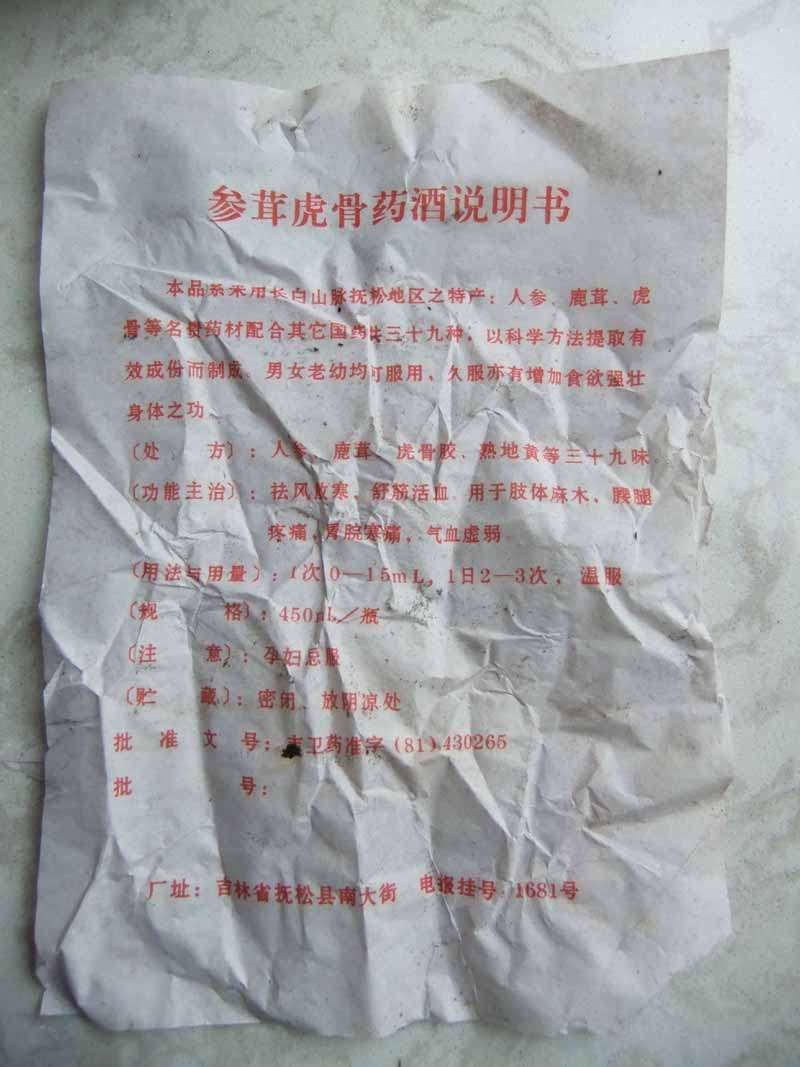 参茸虎骨药酒说明书
本品系采用长白山脉抚松地区之特产：人参、鹿茸、虎
骨等名贵药材配合其它国药共三十九种，以科学方法提取有
效成份而制成。男女老幼均可服用、久服亦有增加食欲强壮
身体之功
〔处方〕：人参、鹿茸、虎骨胶、熟地黄等三十九味。
〔功能主治〕：祛风散寒，舒筋活血。用于肢体麻木、腰腿
疼痛，胃脘寒痛，气血虚弱。
〔用法与用量〕：1次 0—15mL，1日2—3次，温服。
〔规格〕：450mL／瓶
〔注意〕：孕妇忌服
〔贮藏〕：密闭、放阴凉处
批准文号：吉卫药准字(81)430265
批号：
厂址：吉林省抚松县南大街 电报挂号：1681号